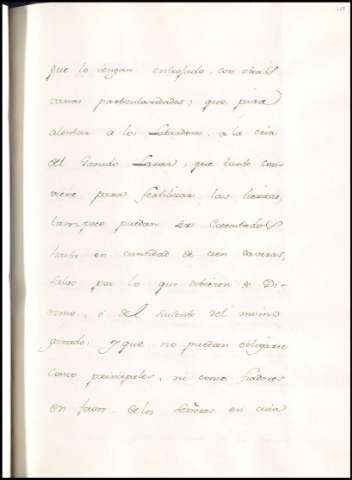 que lo tengan entrojado. con otras
varias particularidades; que para
alentar a los Labradores a la cria
del Ganado Lanar, que tanto con-
viene para fertilizar las tierras,
tampoco puedan ser executados
hasta en cantidad de cien caveras,
salvo por lo que debieren de Di-
ezmo, ó del sustento del mismo
ganado: y que no puedan obligarse
como principales, ni como fiadores
en favor de los Señores en cuia